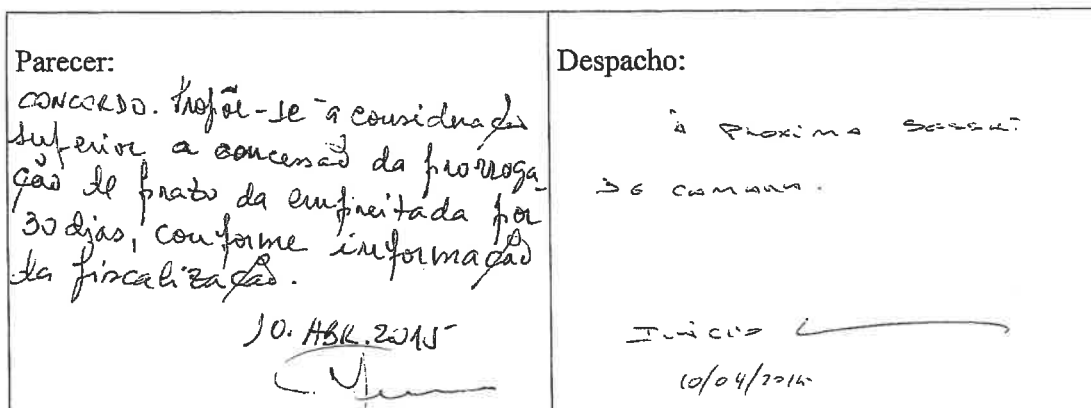 Parecer:
CONCORDO. Propõe-se à consideração
superior a concessão da prorroga-
ção de prazo da empreitada por
30 dias, conforme informação
da fiscalização.
10. ABR. 2015
Despacho:
À PROXIMA SESSÃO
DE CAMARA.
INÁCIO
10/04/2015